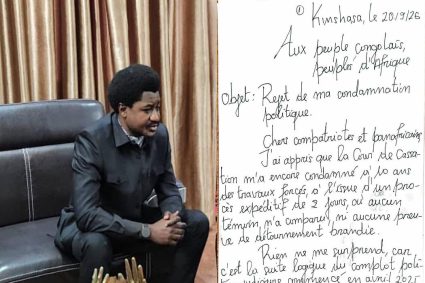 ① Kinshasa, le 20/9/26
Aux peuple congolais,
peuples d'Afrique
Objet: Rejet de ma condamnation
politique.
Chers compatriotes et panafricains
J'ai appris que la Cour de Cassa-
tion m'a encore condamné à 10 ans
des travaux forcés, à l'issue d'un pro-
cès expéditif de 2 jours, où aucun
témoin n'a comparu, ni aucune preu-
ve de détournement brandie.
Rien ne me surprend, car
c'est la suite logique du complot poli-
commencé en avril 2025